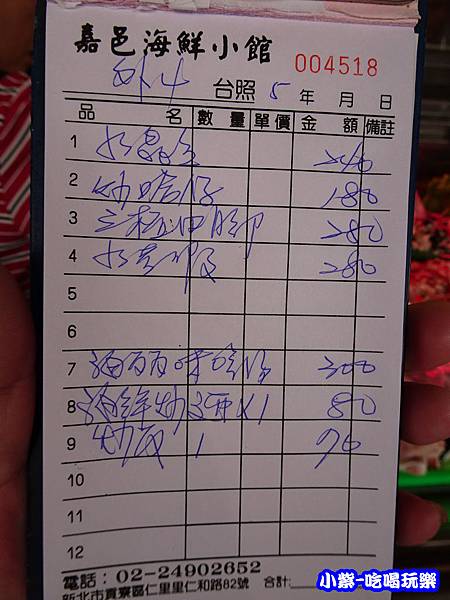 嘉邑海鮮小館
004518
外4 台照 5 年 月 日
品 名 數 量 單 價 金 額 備註
1 水晶魚
2 180
3 280
4 280
5
6
7 300
8 海鮮炒麵 X1 80
9 炒飯 1 70
10
11
12
電話：02-24902652
新北市貢寮區仁里里仁和路82號 合計:
小紫-吃喝玩樂